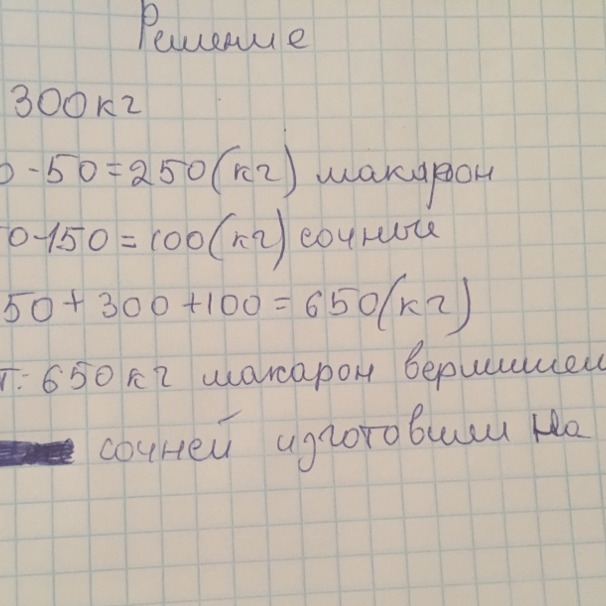 Решение
300 кг
0-50=250(кг) макарон
0-150=100(кг) сочные
50+300+100=650(кг)
т: 650 кг макарон вермишел
сочней изготовили на